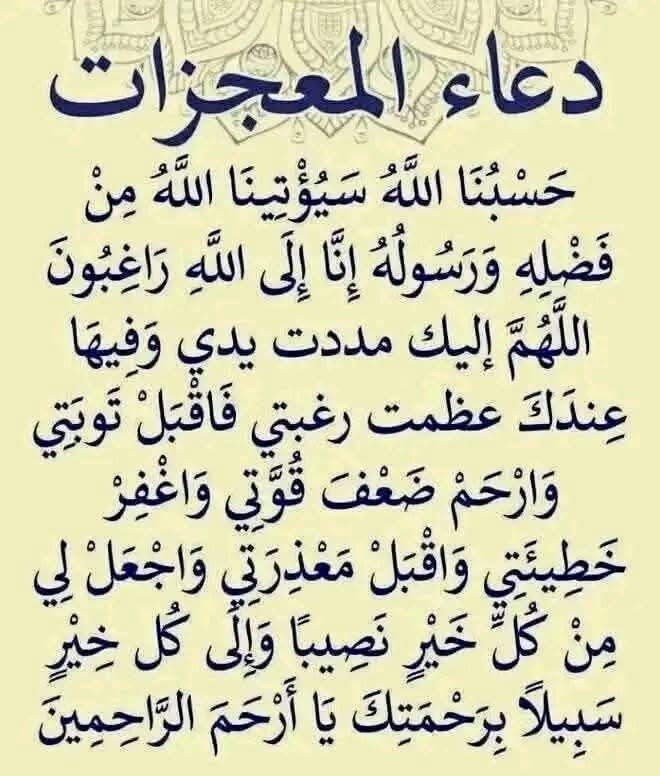 دعاء المعجزات
حَسْبُنَا اللَّهُ سَيُؤْتِينَا اللَّهُ مِنْ
فَضْلِهِ وَرَسُولُهُ إِنَّا إِلَى اللَّهِ رَاغِبُونَ
اللَّهُمَّ إليك مددت يدي وَفِيهَا
عِندَكَ عظمت رغبتي فَاقْبَلْ تَوبَتِي
وَارْحَمْ ضَعْفَ قُوَّتِي وَاغْفِرْ
خَطِيئَتِي وَاقْبَلْ مَعْذِرَتِي وَاجْعَلْ لِي
مِنْ كُلِّ خَيْرٍ نَصِيبًا وَإِلَى كُل خِيْرٍ
سَبِيلاً بِرَحْمَتِكَ يَا أَرْحَمَ الرَّاحِمِينَ